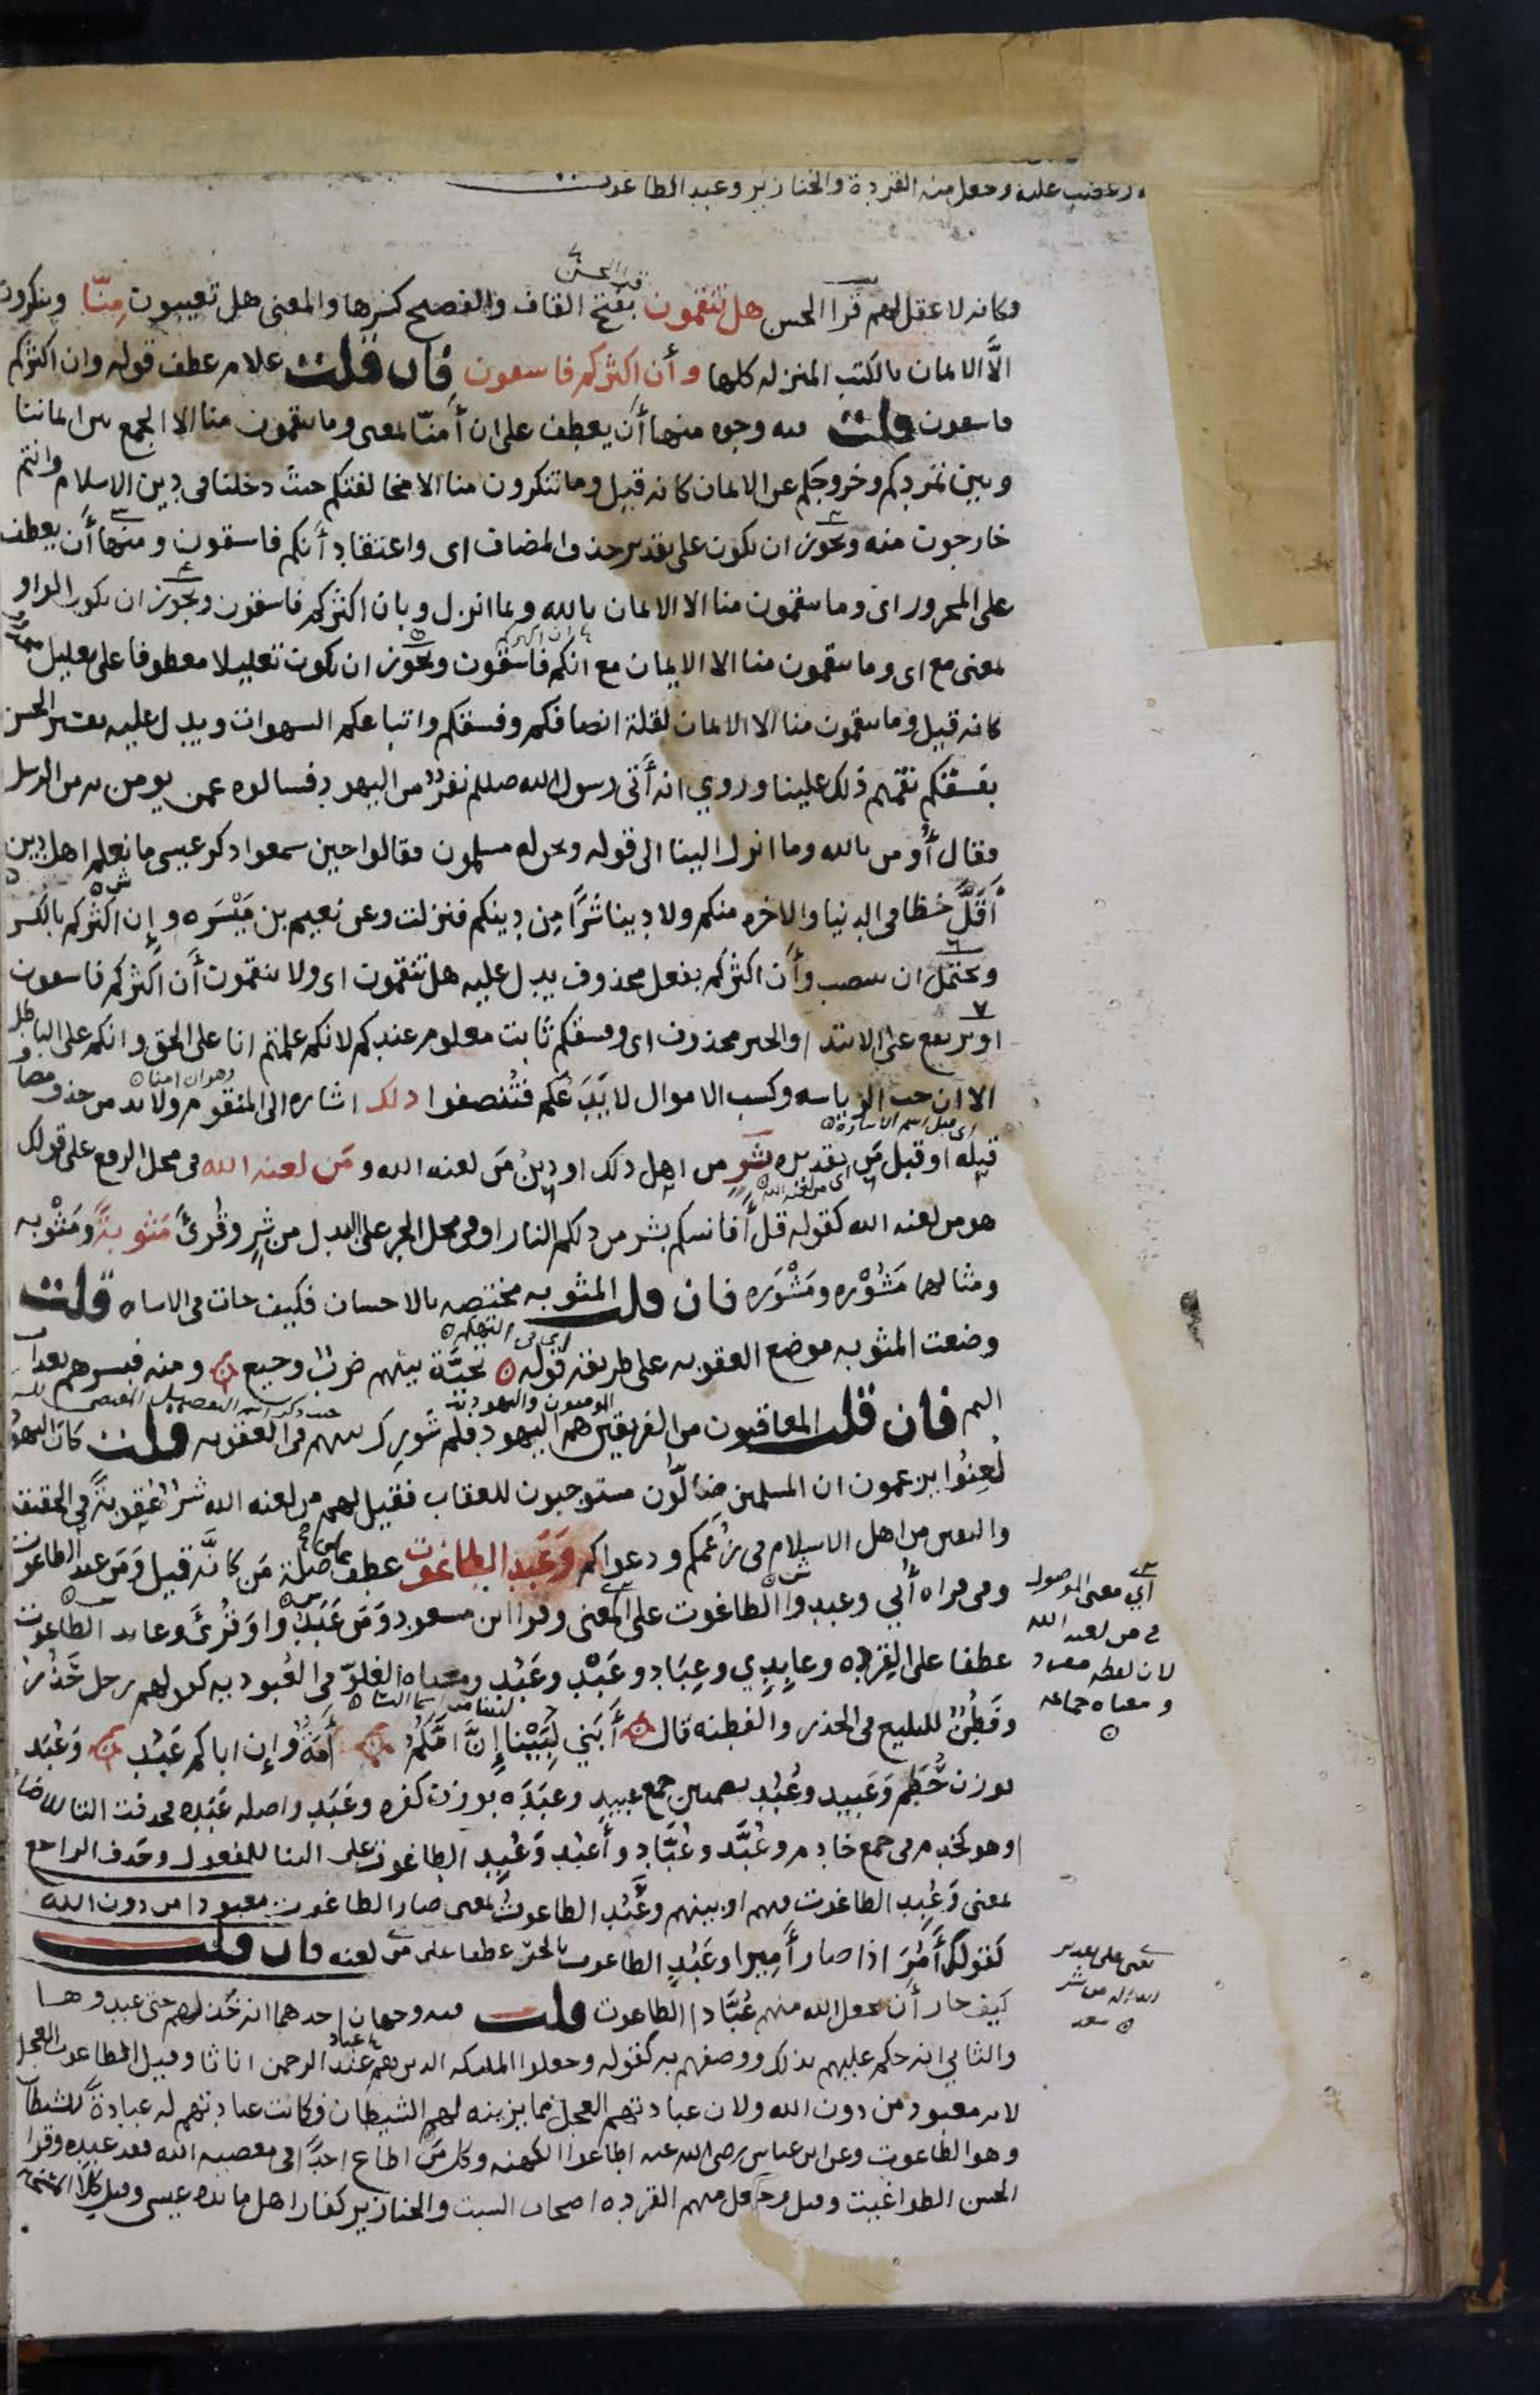 وغضب عليه وجعل منهم القردة والخنازير وعبد الطاغوت
وكانه لا عقل لهم قرا الحسن هل تنقمون بفتح القاف والفصيح كسرها والمعنى هل تعيبون منّا وتنكرون
الّا الايمان بالكتب المنزله كلها وأن اكثركم فاسقون فان قلت علام عطف قوله وان اكثركم
فاسقون قلت فيه وجوه منها أن يعطف على ان أمنّا بمعنى وما تنقمون منا الا الجمع بين ايماننا
وبين تمردكم وخروجكم عن الايمان كانه قيل وما تنكرون منا الا مخالفتكم حيث دخلنا في دين الاسلام وانتم
خارجون منه ويجوز ان يكون على تقدير حذف المضاف اى واعتقاد أنكم فاسقون ومنها أن يعطف
على المجرور اى وما تنقمون منا الا الايمان بالله وبما انزل وبان اكثركم فاسقون ويجوز ان يكون الواو
بمعنى مع اى وما تنقمون منا الا الايمان مع انكم فاسقون ويجوز ان يكون تعليلا معطوفا على تعليل محذوف
كانه قيل وما تنقمون منا الا الايمان لقلة انصافكم وفسقكم واتباعكم الشهوات ويدل عليه تفسير الحسن
بفسقكم نقمتم ذلك علينا وروي انه أتى رسول الله صللم نفرٌ من اليهود فسالوه عمن يومن به من الرسل
فقال أومن بالله وما انزل الينا الى قوله ونحن له مسلمون فقالوا حين سمعوا ذكر عيسى ما نعلم اهل دين
أقلَّ حظا في الدنيا والاخره منكم ولا دينا شرًّا من دينكم فنزلت وعن نعيم بن مَيْسَره وإن اكثركم بالكسر
ويحتمل ان ينصب وأن اكثركم بفعل محذوف يدل عليه هل تنقمون اى ولا تنقمون أن اكثركم فاسقون
او يرتفع على الابتدا والخبر محذوف اى وفسقكم ثابت معلوم عندكم لانكم علمتم انا على الحق وانكم على الباطل
الا ان حب الرياسه وكسب الاموال لا يَدَعكم فتُنصفوا ذلك اشاره الى المنقوم ولا بد من حذف مضاف
وهو ان امنا
اى قبل اسم الاشارة
قبله او قبل مَن تقديره بشرٍ من اهل ذلك او دينُ مَن لعنه الله ومَن لعنه الله في محل الرفع على قولك
اى من لعنه الله
هو من لعنه الله كقوله قل أفانبيكم بشر من ذلكم النار او في محل الجر على البدل من شرٍ وقُرئَ مثوبةً ومَثْوبه
ومثالهما مَشُوْره ومَشْوَره فان قلت المثوبه مختصه بالاحسان فكيف جات في الاساه قلت
وضعت المثوبه موضع العقوبه على طريقة قوله تحيَّة بينهم ضربٌ وجيع ومنه فبشرهم بعذاب
اى في التهكم
اليم فان قلت المعاقبون من الفريقين هم اليهود فلم شُورِك بينهم في العقوبه قلت كان اليهود
لُعِنُوا يزعمون ان المسلمين ضالُّون مستوجبون للعقاب فقيل لهم من لعنه الله شرٌ عقوبةً في الحقيقه
واليقين من اهل الاسلام في زعمكم ودعواكم وَعَبد الطاغوت عطف على صلة مَن كانَّه قيل وَمَن عبد الطاغوت
وفي قراه أُبي وعبدوا الطاغوت على المعنى وقرا ابن مسعود وَمَن عَبَدُوا وقُرئَ وعابد الطاغوت
عطفا على القرده وعابدِي وعِبَاد وعَبْد وعَبُد ومعناه الغلوّ في العُبوديه كقولهم رجل حَذُر
وفَطُنٌ للبليغ في الحذر والفطنه قال أَبَني لُبَيْنا إِنَّ امَّكُمُ أَمَةٌ وإن اباكم عَبُد وَعُبَد
بوزن حُطَم وَعَبيد وعُبُد بضمتين جمع عبيد وعبَدَه بوزن كفره وعَبَد واصله عَبَده فحذفت التا للاضافه
او هو كخدم في جمع خادم وعُبَّد وعُبَّاد وأعبُد وَعُبِد الطاغوت على البنا للمفعول وحَذف الراجع
بمعنى وَعُبِد الطاغوت فيهم او بينهم وعَبُد الطاغوتُ بمعنى صار الطاغوت معبودا من دون الله
كقولك أَمُرَ اذا صار أَميرا وعَبْدِ الطاغوت بالجرّ عطفا على من لعنه فان قلت
كيف جاز أن يجعل الله منهم عُبَّاد الطاغوت قلت فيه وجهان احدهما انه خَذلهم حتى عبدوها
والثاني انه حكم عليهم بذلك ووصفهم به كقوله وجعلوا الملائكه الذين هم عند الرحمن اناثا وقيل الطاغوت العجل
لانه معبود من دون الله ولان عبادتهم العجل مما يزينه لهم الشيطان فكانت عبادتهم له عبادةً للشيطان
وهو الطاغوت وعن ابن عباس رضى الله عنه اطاعوا الكهنه وكل من اطاع احدًا في معصيه الله فقد عبده وقرا
الحسن الطواغيت وقيل وجعل منهم القرده اصحاب السبت والخنازير كفار اهل مايده عيسى وقيل كلا المسخين
أي معنى الموصول
في من لعنه الله
لان لفظه مفرد
ومعناه جماعه
يعني على تقدير